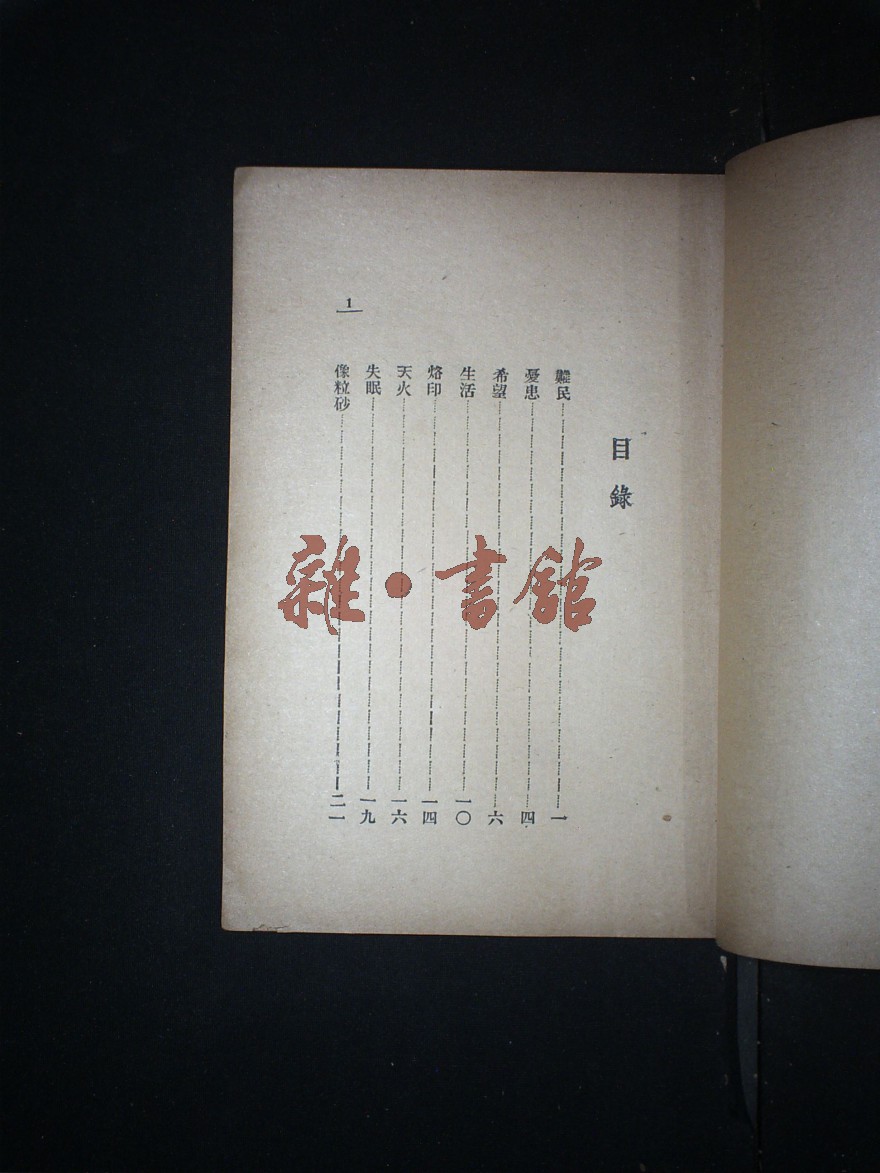 目錄
難民……一
憂患……四
希望……六
生活……一〇
烙印……一四
天火……一六
失眠……一九
像粒砂……二一
1
雜·書館